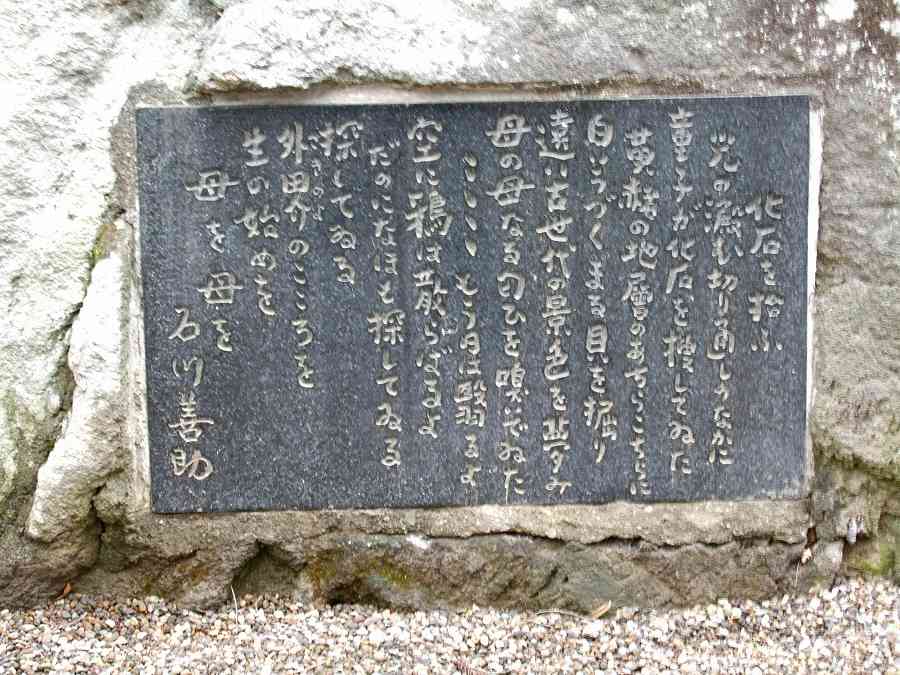 化石を拾ふ
光の澱む切り通しのなかに
童子が化石を捜してゐた
黄赭の地層のあちらこちらに
白いうづくまる貝を掘り
遠い古世代の景色を夢み
母の母なる匂ひを嗅いでゐた
もう日は翳るよ
空に は散らばるよ
だのになほも探してゐる
探してゐる
外界のこころを
生の始めを
母を 母を
石川善助